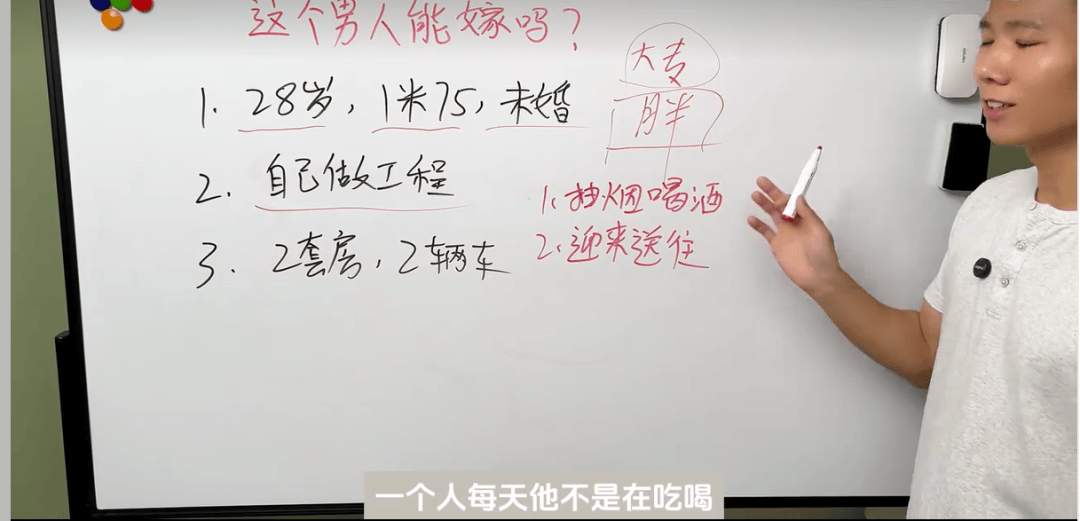 这个男人能嫁吗?
1. 28岁,1米75,未婚
2. 自己做工程
3. 2套房,2辆车
大专
胖
1、抽烟喝酒
2、迎来送往
一个人每天他不是在吃喝